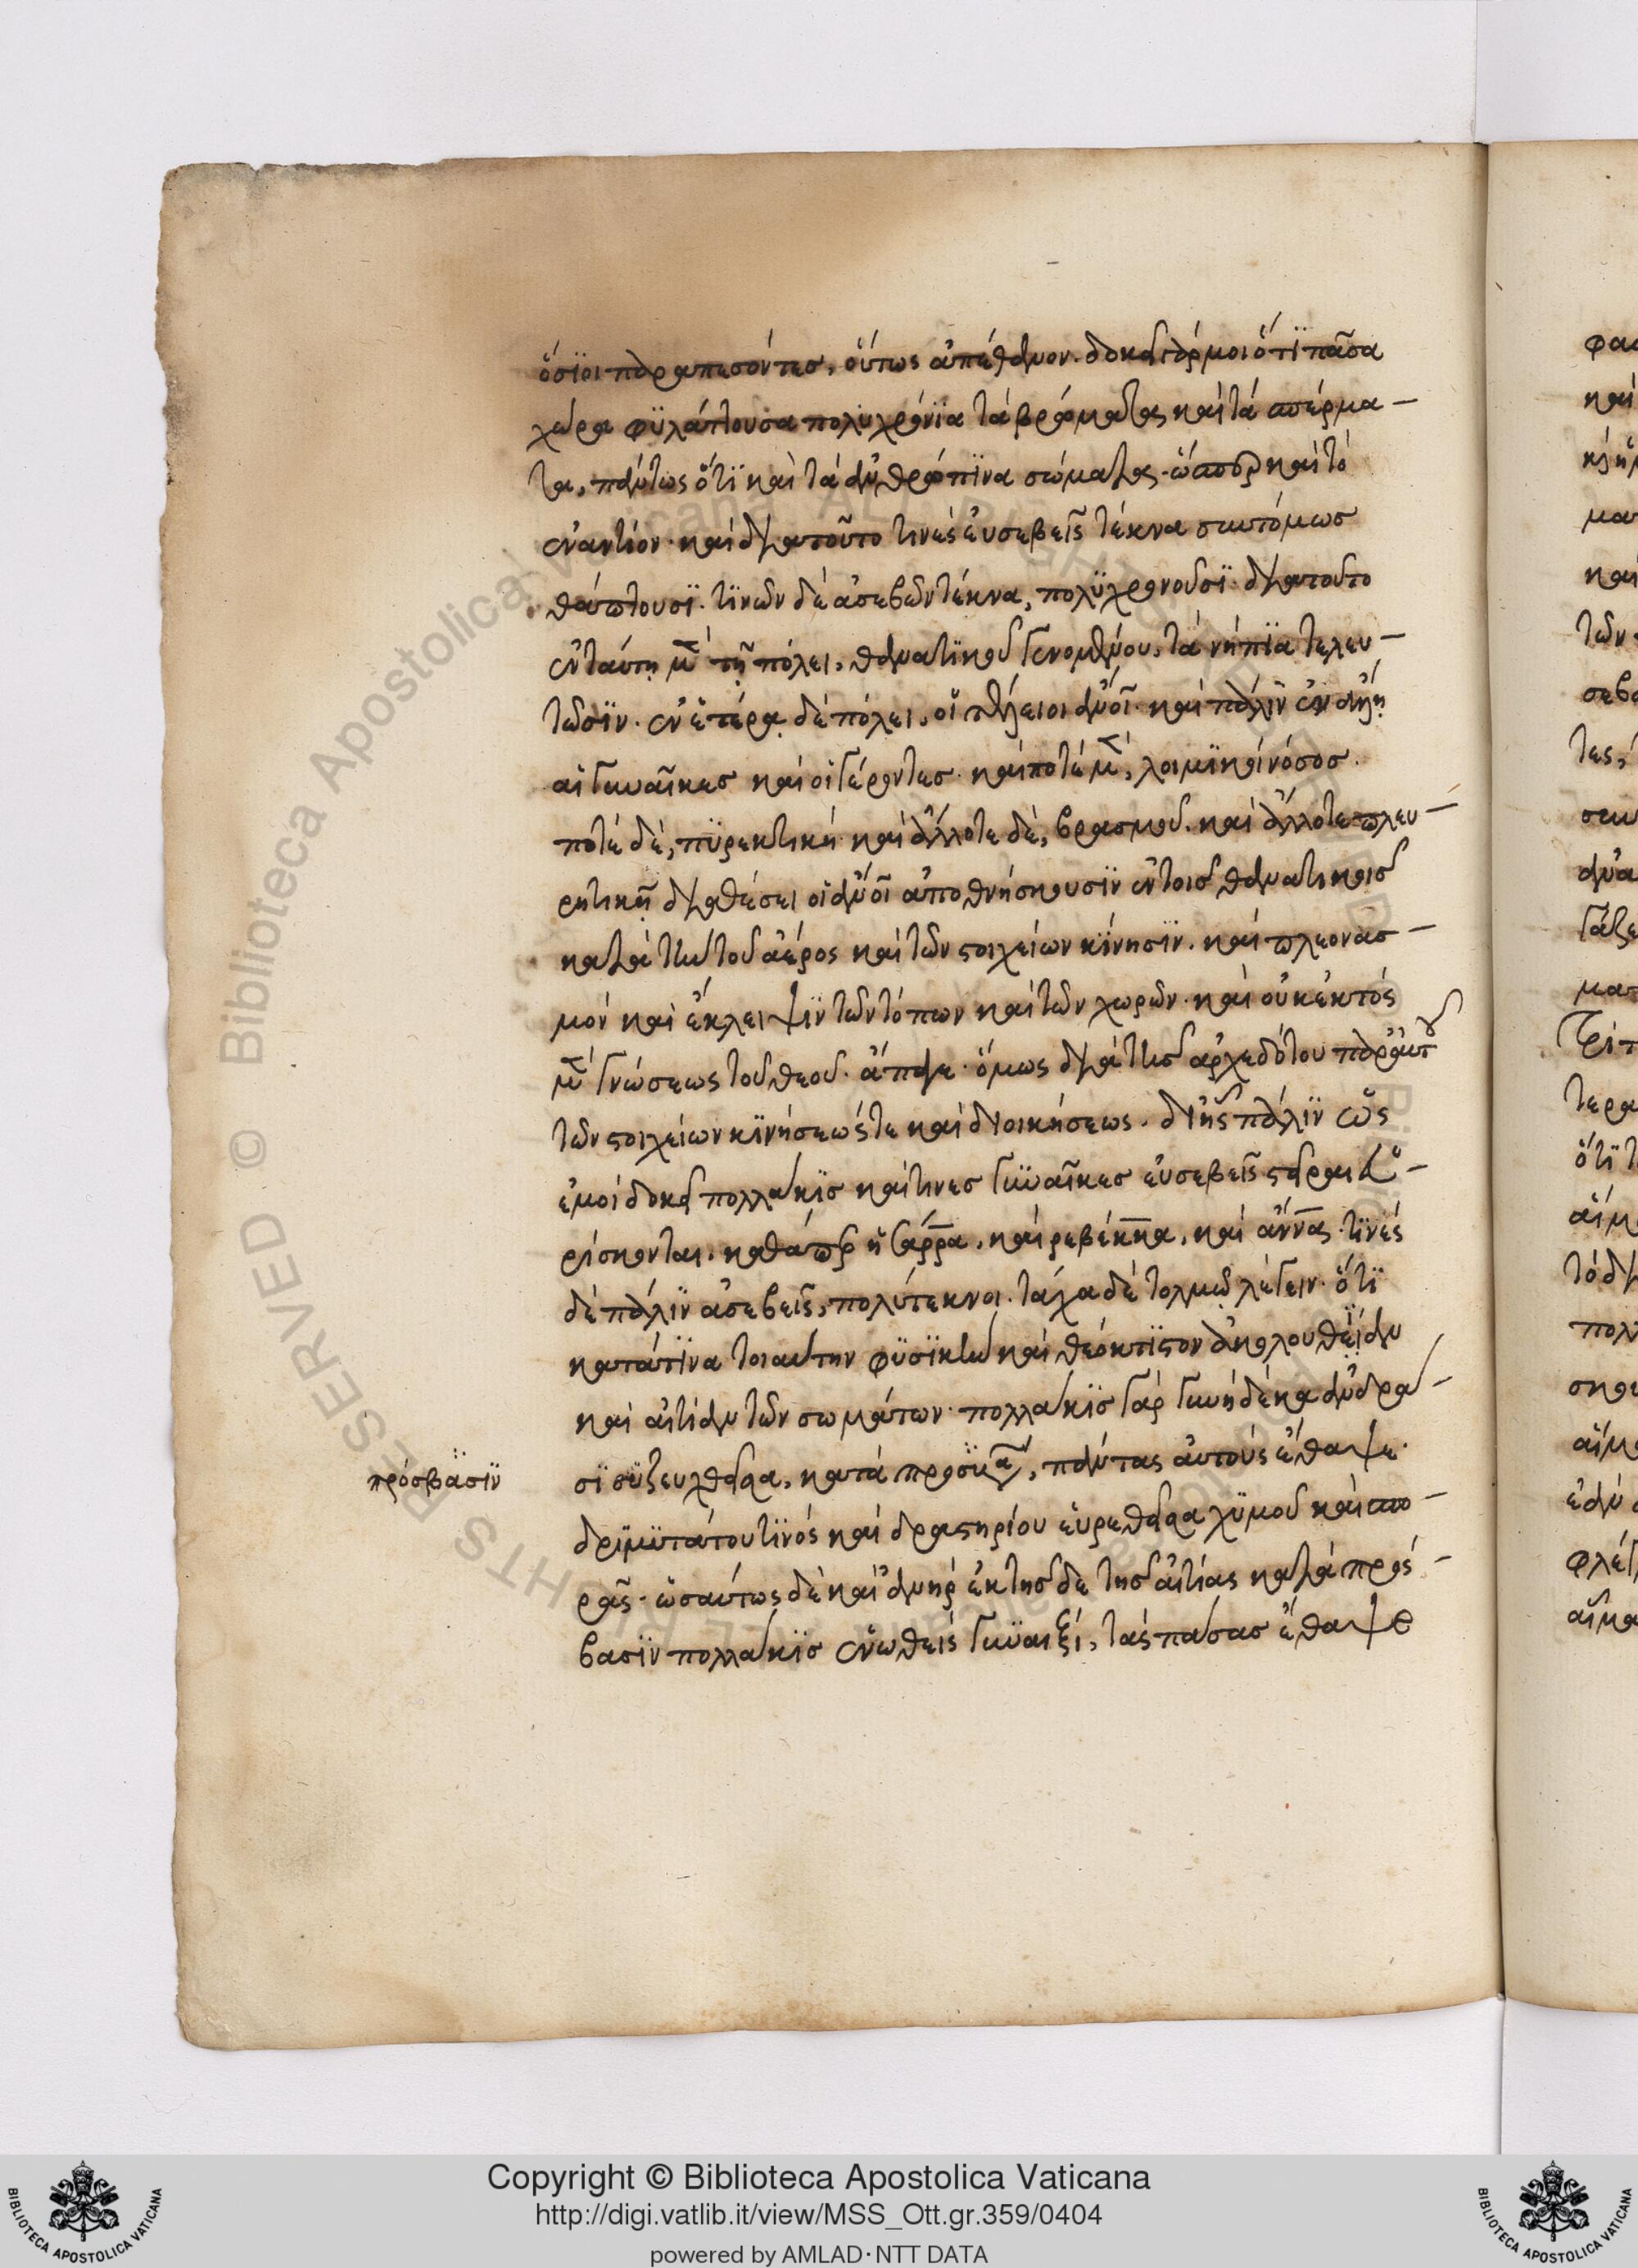 ὅσϊοι παραπεσόντες, οὕπως ἀπέθανον. δοκεῖ γάρ μοι ὅτϊ πᾶσα
χώρα φϋλάττουσα πολϋχρόνϊα τὰ βρώματα καὶ τὰ σπέρμα-
τα, πάντως ὅτϊ καὶ τὰ ἀνθρώπϊνα σώματα. ὥσπερ καὶ τὸ
ἐναντίον. καὶ διατοῦτο τινὲς εὐσεβεῖς τέκνα συντόμως
θάπτουσϊ. τϊνῶν δὲ ἀσεβῶν τέκνα, πολϋχρονοῦσϊ. διατοῦτο
ἐν ταύτη μὲν τῇ πόλει, θανατϊκοῦ γενομένου, τὰ νήπϊα τελευ-
τῶσϊν. ἐν ἑτέρα δὲ πόλει, οἱ πλείους ἄνοι. καὶ πάλϊν ἐν ἄλλη
αἱ γυναῖκες καὶ οἱ γέροντες. καὶ ποτὲ μὲν, λοιμϊκὴ νόσος.
ποτὲ δὲ, πϋρεκτικὴ καὶ ἄλλοτε δὲ, βρασμοῦ. καὶ ἄλλοτε πλευ-
ρητικῇ διαθέσει οἱ ἄνοι ἀποθνήσκουσϊν ἐν τοῖς θανατικοῖς
κατὰ τὴν τοῦ ἀέρος καὶ τῶν στοιχείων κϊνησϊν. καὶ πλεονασ-
μὸν καὶ ἔκλειψϊν τῶν τόπων καὶ τῶν χωρῶν. καὶ οὐκ ἐκτὸς
μὲν γνώσεως τοῦ θεοῦ. ἄπαγε. ὅμως διὰ τῆς ἀρχεδότου παρ' αὐτοῦ
τῶν στοιχείων κϊνήσεώς τε καὶ διοικήσεως. δι' ἧς πάλϊν ὡς
ἐμοὶ δοκεῖ πολλάκϊς καὶ τινες γυναῖκες εὐσεβεῖς στεῖραι εὑ-
ρίσκονται. καθάπερ ἡ σάρρα, καὶ ρεβέκκα, καὶ ἄννα. τϊνὲς
δὲ πάλϊν ἀσεβεῖς, πολύτεκνοι. τάχα δὲ τολμῶ λέγειν. ὅτϊ
κατά τϊνα τοιαύτην φϋσϊκὴν καὶ θεόκτϊστον ἀκολουθείαν
καὶ αἰτίαν τῶν σωμάτων. πολλάκϊς γὰρ γυνὴ δέκα ἀνδρά-
σϊ σϋζευχθεῖσα, κατὰ πρόσϊκα, πάντας αὐτοὺς ἔθαψε.
πρόσβασϊν
δρϊμϋτάτου τϊνὸς καὶ δραστηρίου εὑρεθεῖσα χϋμοῦ καὶ σπο-
ρᾶς. ὡσαύτως δὲ καὶ ἀνὴρ ἐκ τῆς δε τῆς αἰτίας κατὰ πρός-
βασϊν πολλάκϊς ἑνωθεὶς γυναιξὶ, τὰς πάσας ἔθαψε
Copyright © Biblioteca Apostolica Vaticana
http://digi.vatlib.it/view/MSS_Ott.gr.359/0404
powered by AMLAD·NTT DATA